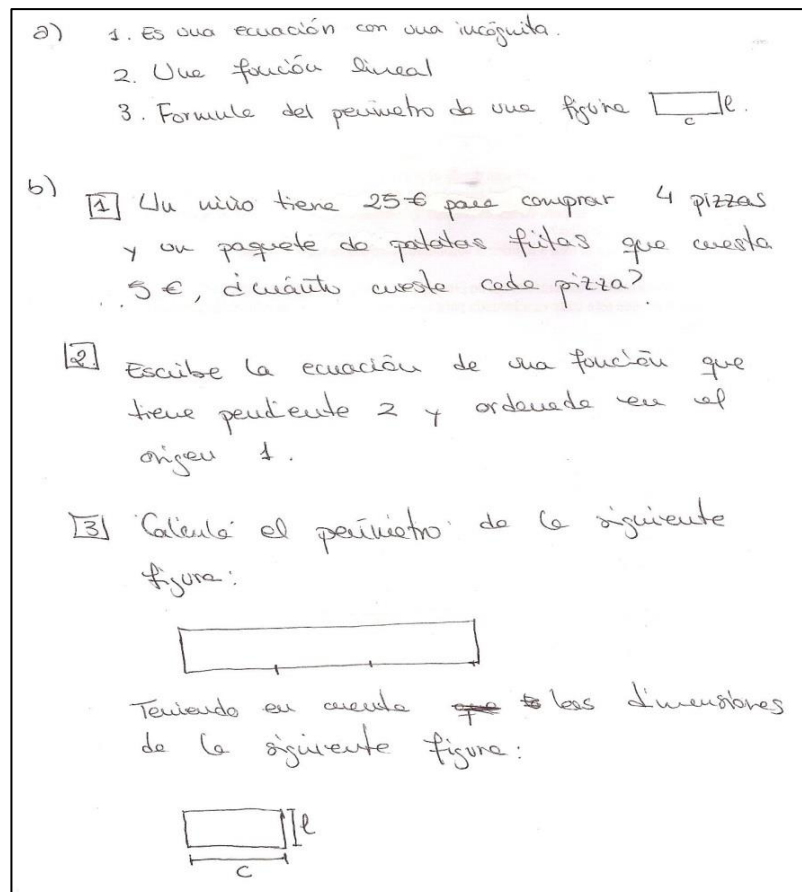 a) 1. Es una ecuación con una incógnita.
2. Una función lineal
3. Formula del perimetro de una figura l.
c
b) 1 Un niño tiene 25€ para comprar 4 pizzas
y un paquete de patatas fritas que cuesta
5 €, ¿cuánto cuesta cada pizza?
2 Escribe la ecuación de una función que
tiene pendiente 2 y ordenada en el
origen 1.
3 Calcula el perímetro de la siguiente
figura:
Teniendo en cuenta las dimensiones
de la siguiente figura:
l
c